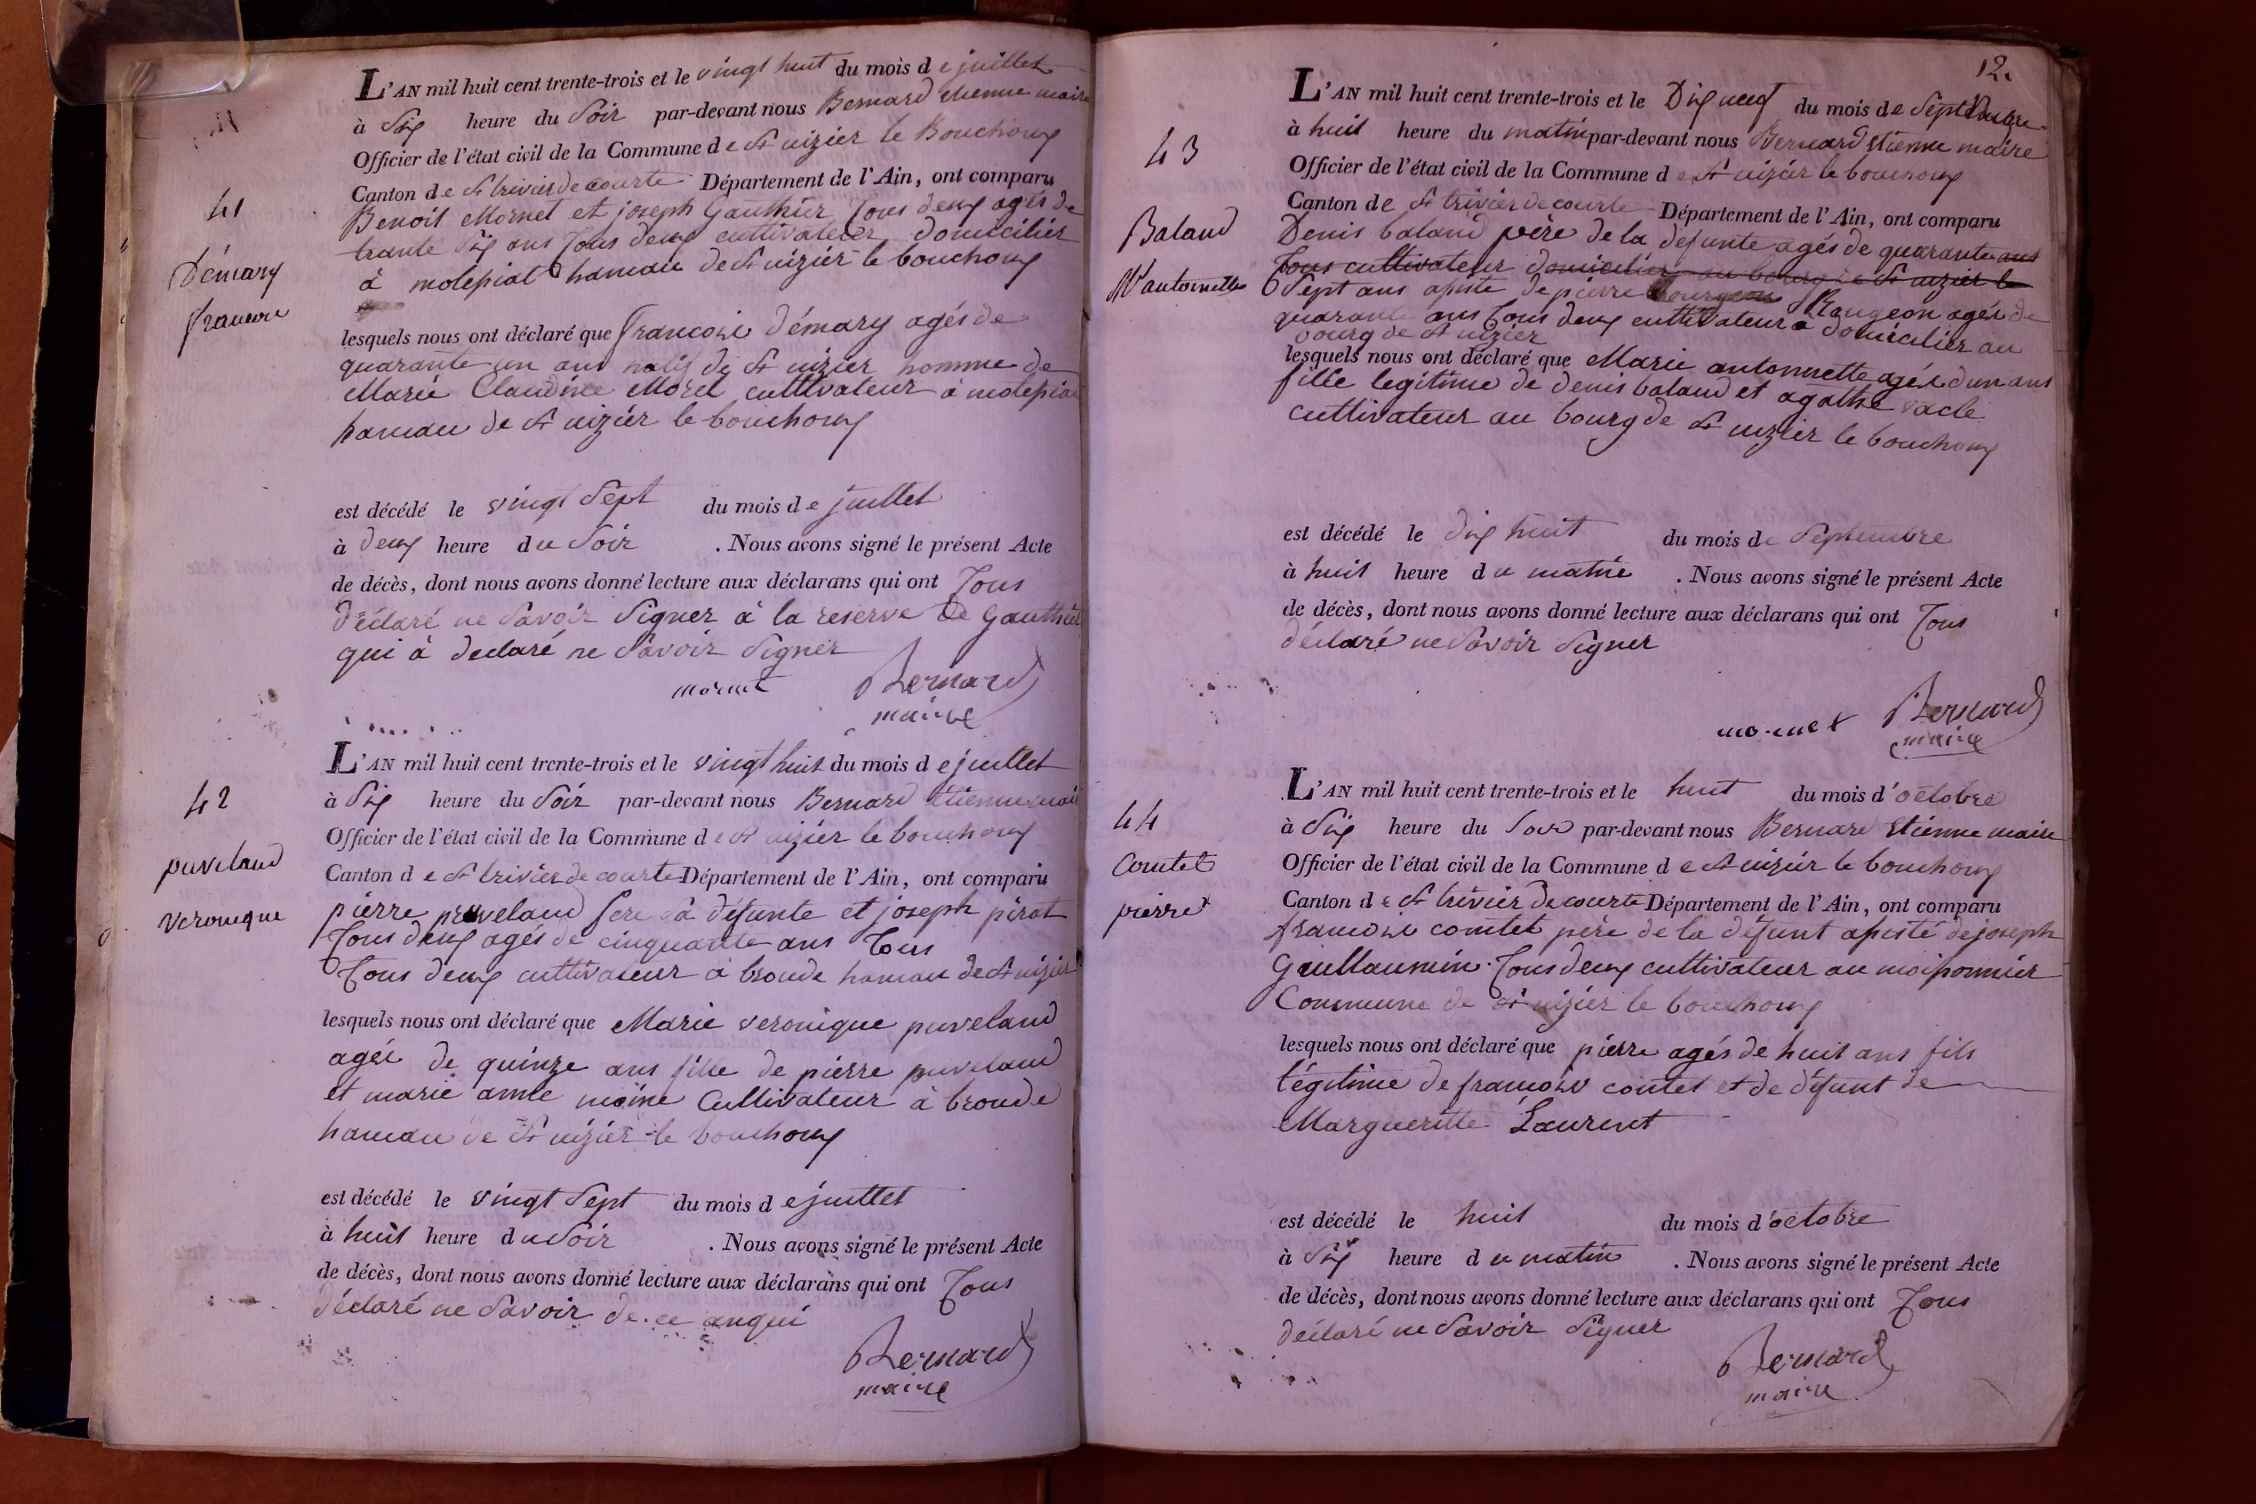 41
Démary
francoise
L'AN mil huit cent trente-trois et le vingt huit du mois de juillet
à six heure du soir par-devant nous Bernard etienne maire
Officier de l'état civil de la Commune de st nizier le Bouchoux
Canton de st trivier de courte Département de l'Ain, ont comparu
Benoit Mornet et joseph Gauthier tous deux agés de
trante six ans tous deux cultivateur domicilier
à molepiat hameau de st nizier le bouchoux
lesquels nous ont déclaré que francoise démary agés de
quarante un ans natif de st nizier homme de
Marie Claudine Morel cultivateur à molepiat
hameau de st nizier le bouchoux
est décédé le vingt sept du mois de juillet
à deux heure du soir . Nous avons signé le présent Acte
de décès, dont nous avons donné lecture aux déclarans qui ont tous
déclaré ne savoir signer à la reserve de Gauthier
qui à declaré ne savoir signer
mornet Bernard
maire
42
puveland
veronique
L'AN mil huit cent trente-trois et le vingt huit du mois de juillet
à six heure du soir par-devant nous Bernard etienne maire
Officier de l'état civil de la Commune de st nizier le bouchoux
Canton de st trivier de courte Département de l'Ain, ont comparu
pierre puveland à défunte et joseph pirat
tous deux agés de cinquante ans tous
tous deux cultivateur à broude hameau de st nizier
lesquels nous ont déclaré que Marie veronique puveland
agée de quinze ans fille de pierre puveland
et marie anne moine cultivateur à broude
hameau de st nizier le bouchoux
est décédé le vingt sept du mois de juillet
à huit heure du soir . Nous avons signé le présent Acte
de décès, dont nous avons donné lecture aux déclarans qui ont tous
déclaré ne savoir de ce anqui
Bernard
maire
12.
43
Baland
M antoinette
L'AN mil huit cent trente-trois et le Dix neuf du mois de septembre
à huit heure du matin par-devant nous Bernard etienne maire
Officier de l'état civil de la Commune de st nizier le bouchoux
Canton de st trivier de courte Département de l'Ain, ont comparu
Denis baland père de la defunte agés de quarante ans
tous cultivateur domicilier au bourg de st nizier le
sept ans apisté de pierre Rougeon agés de
quarante ans tous deux cultivateur à domicilier au
bourg de st nizier
lesquels nous ont déclaré que Marie antonnette agée d'un ans
fille legitime de denis baland et agathe vacle
cultivateur au bourg de st nizier le bouchoux
est décédé le dix huit du mois de septembre
à huit heure du matin . Nous avons signé le présent Acte
de décès, dont nous avons donné lecture aux déclarans qui ont tous
déclaré ne savoir signer
mornet Bernard
maire
44
Comtet
pierre
L'AN mil huit cent trente-trois et le huit du mois d'octobre
à six heure du soir par-devant nous Bernard etienne maire
Officier de l'état civil de la Commune de st nizier le bouchoux
Canton de st trivier de courte Département de l'Ain, ont comparu
francoise comtet père de la défunt apisté de joseph
Guillaumin tous deux cultivateur au moiponnier
Commune de st nizier le bouchoux
lesquels nous ont déclaré que pierre agés de huit ans fils
légitime de francoise contet et de défunt de
Margueritte Laurent
est décédé le huit du mois d'octobre
à six heure du matin . Nous avons signé le présent Acte
de décès, dont nous avons donné lecture aux déclarans qui ont tous
déclaré ne savoir signer
Bernard
maire